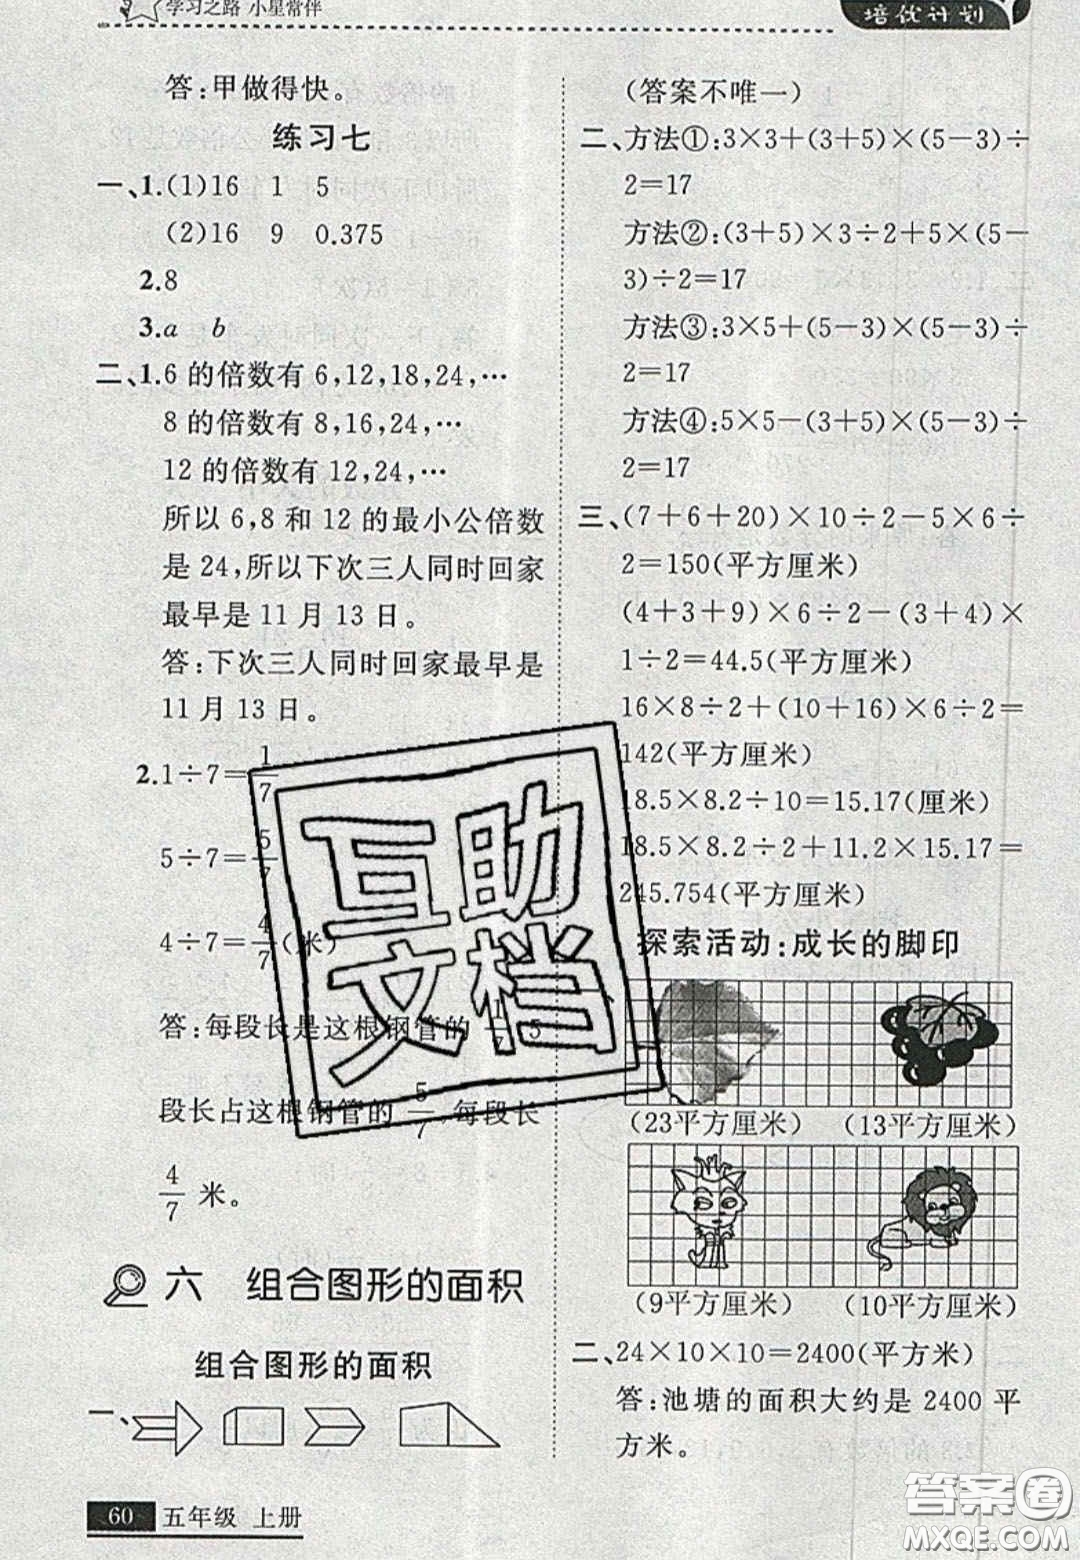 学习之路 小星常伴
培优计划
答:甲做得快。
练习七
一、1.(1)16 1 5
(2)16 9 0.375
2.8
3.a b
二、1.6 的倍数有 6,12,18,24,…
8 的倍数有 8,16,24,…
12 的倍数有 12,24,…
所以 6,8 和 12 的最小公倍数
是 24,所以下次三人同时回家
最早是 11 月 13 日。
答:下次三人同时回家最早是
11 月 13 日。
2.1÷7=1/7
5÷7=5/7
4÷7=4/7(米)
答:每段长是这根钢管的 1/7 5
段长占这根钢管的 5/7,每段长
4/7 米。
六 组合图形的面积
组合图形的面积
一、
60 五年级 上册
(答案不唯一)
二、方法①:3×3+(3+5)×(5-3)÷
2=17
方法②:(3+5)×3÷2+5×(5-
3)÷2=17
方法③:3×5+(5-3)×(5-3)÷
2=17
方法④:5×5-(3+5)×(5-3)÷
2=17
三、(7+6+20)×10÷2-5×6÷
2=150(平方厘米)
(4+3+9)×6÷2-(3+4)×
1÷2=44.5(平方厘米)
16×8÷2+(10+16)×6÷2=
142(平方厘米)
18.5×8.2÷10=15.17(厘米)
18.5×8.2÷2+11.2×15.17=
245.754(平方厘米)
探索活动:成长的脚印
(23平方厘米) (13平方厘米)
(9平方厘米) (10平方厘米)
二、24×10×10=2400(平方米)
答:池塘的面积大约是 2400 平
方米。
互助
文档
答案圈
MXQE.COM